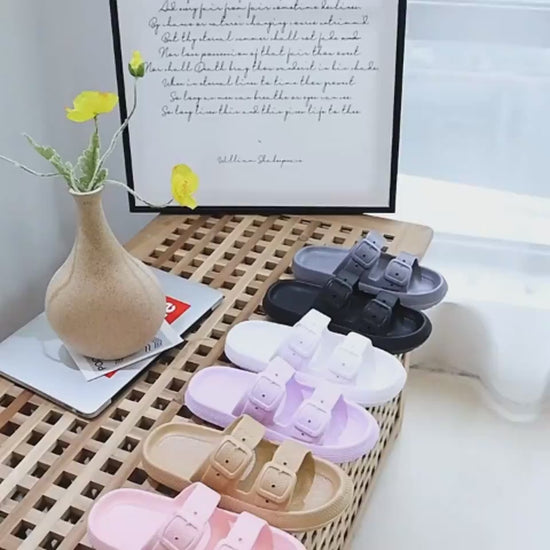 And every fair from fair sometime declines
By chance or nature's changing course untrimmed
But thy eternal summer shall not fade and
Nor lose possession of that fair thou owest
Nor shall Death brag thou wanderest in his shade
When in eternal lines to time thou growest
So long as men can breathe or eyes can see
So long lives this and this gives life to thee
William Shakespeare